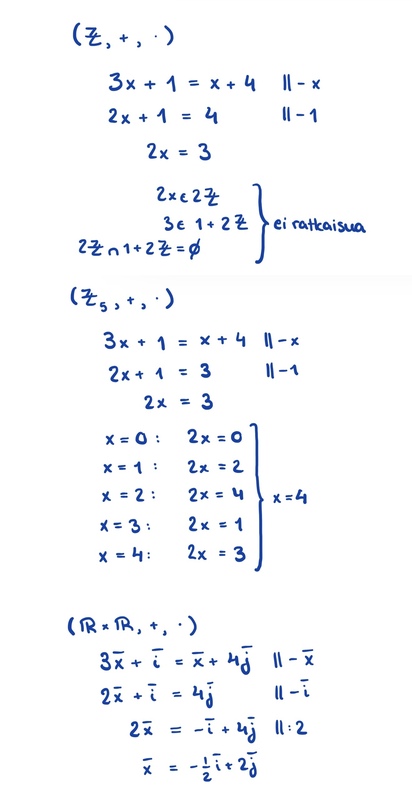 (ℤ, +, ·)
3x + 1 = x + 4 || - x
2x + 1 = 4 || - 1
2x = 3
2x ∈ 2ℤ
3 ∈ 1 + 2ℤ
2ℤ ∩ 1 + 2ℤ = ∅
ei ratkaisua
(ℤ₅, +, ·)
3x + 1 = x + 4 || - x
2x + 1 = 3 || - 1
2x = 3
x = 0 : 2x = 0
x = 1 : 2x = 2
x = 2 : 2x = 4
x = 3 : 2x = 1
x = 4 : 2x = 3
x = 4
(ℝ × ℝ, +, ·)
3x̄ + ī = x̄ + 4j̄ || - x̄
2x̄ + ī = 4j̄ || - ī
2x̄ = -ī + 4j̄ || : 2
x̄ = -½ī + 2j̄